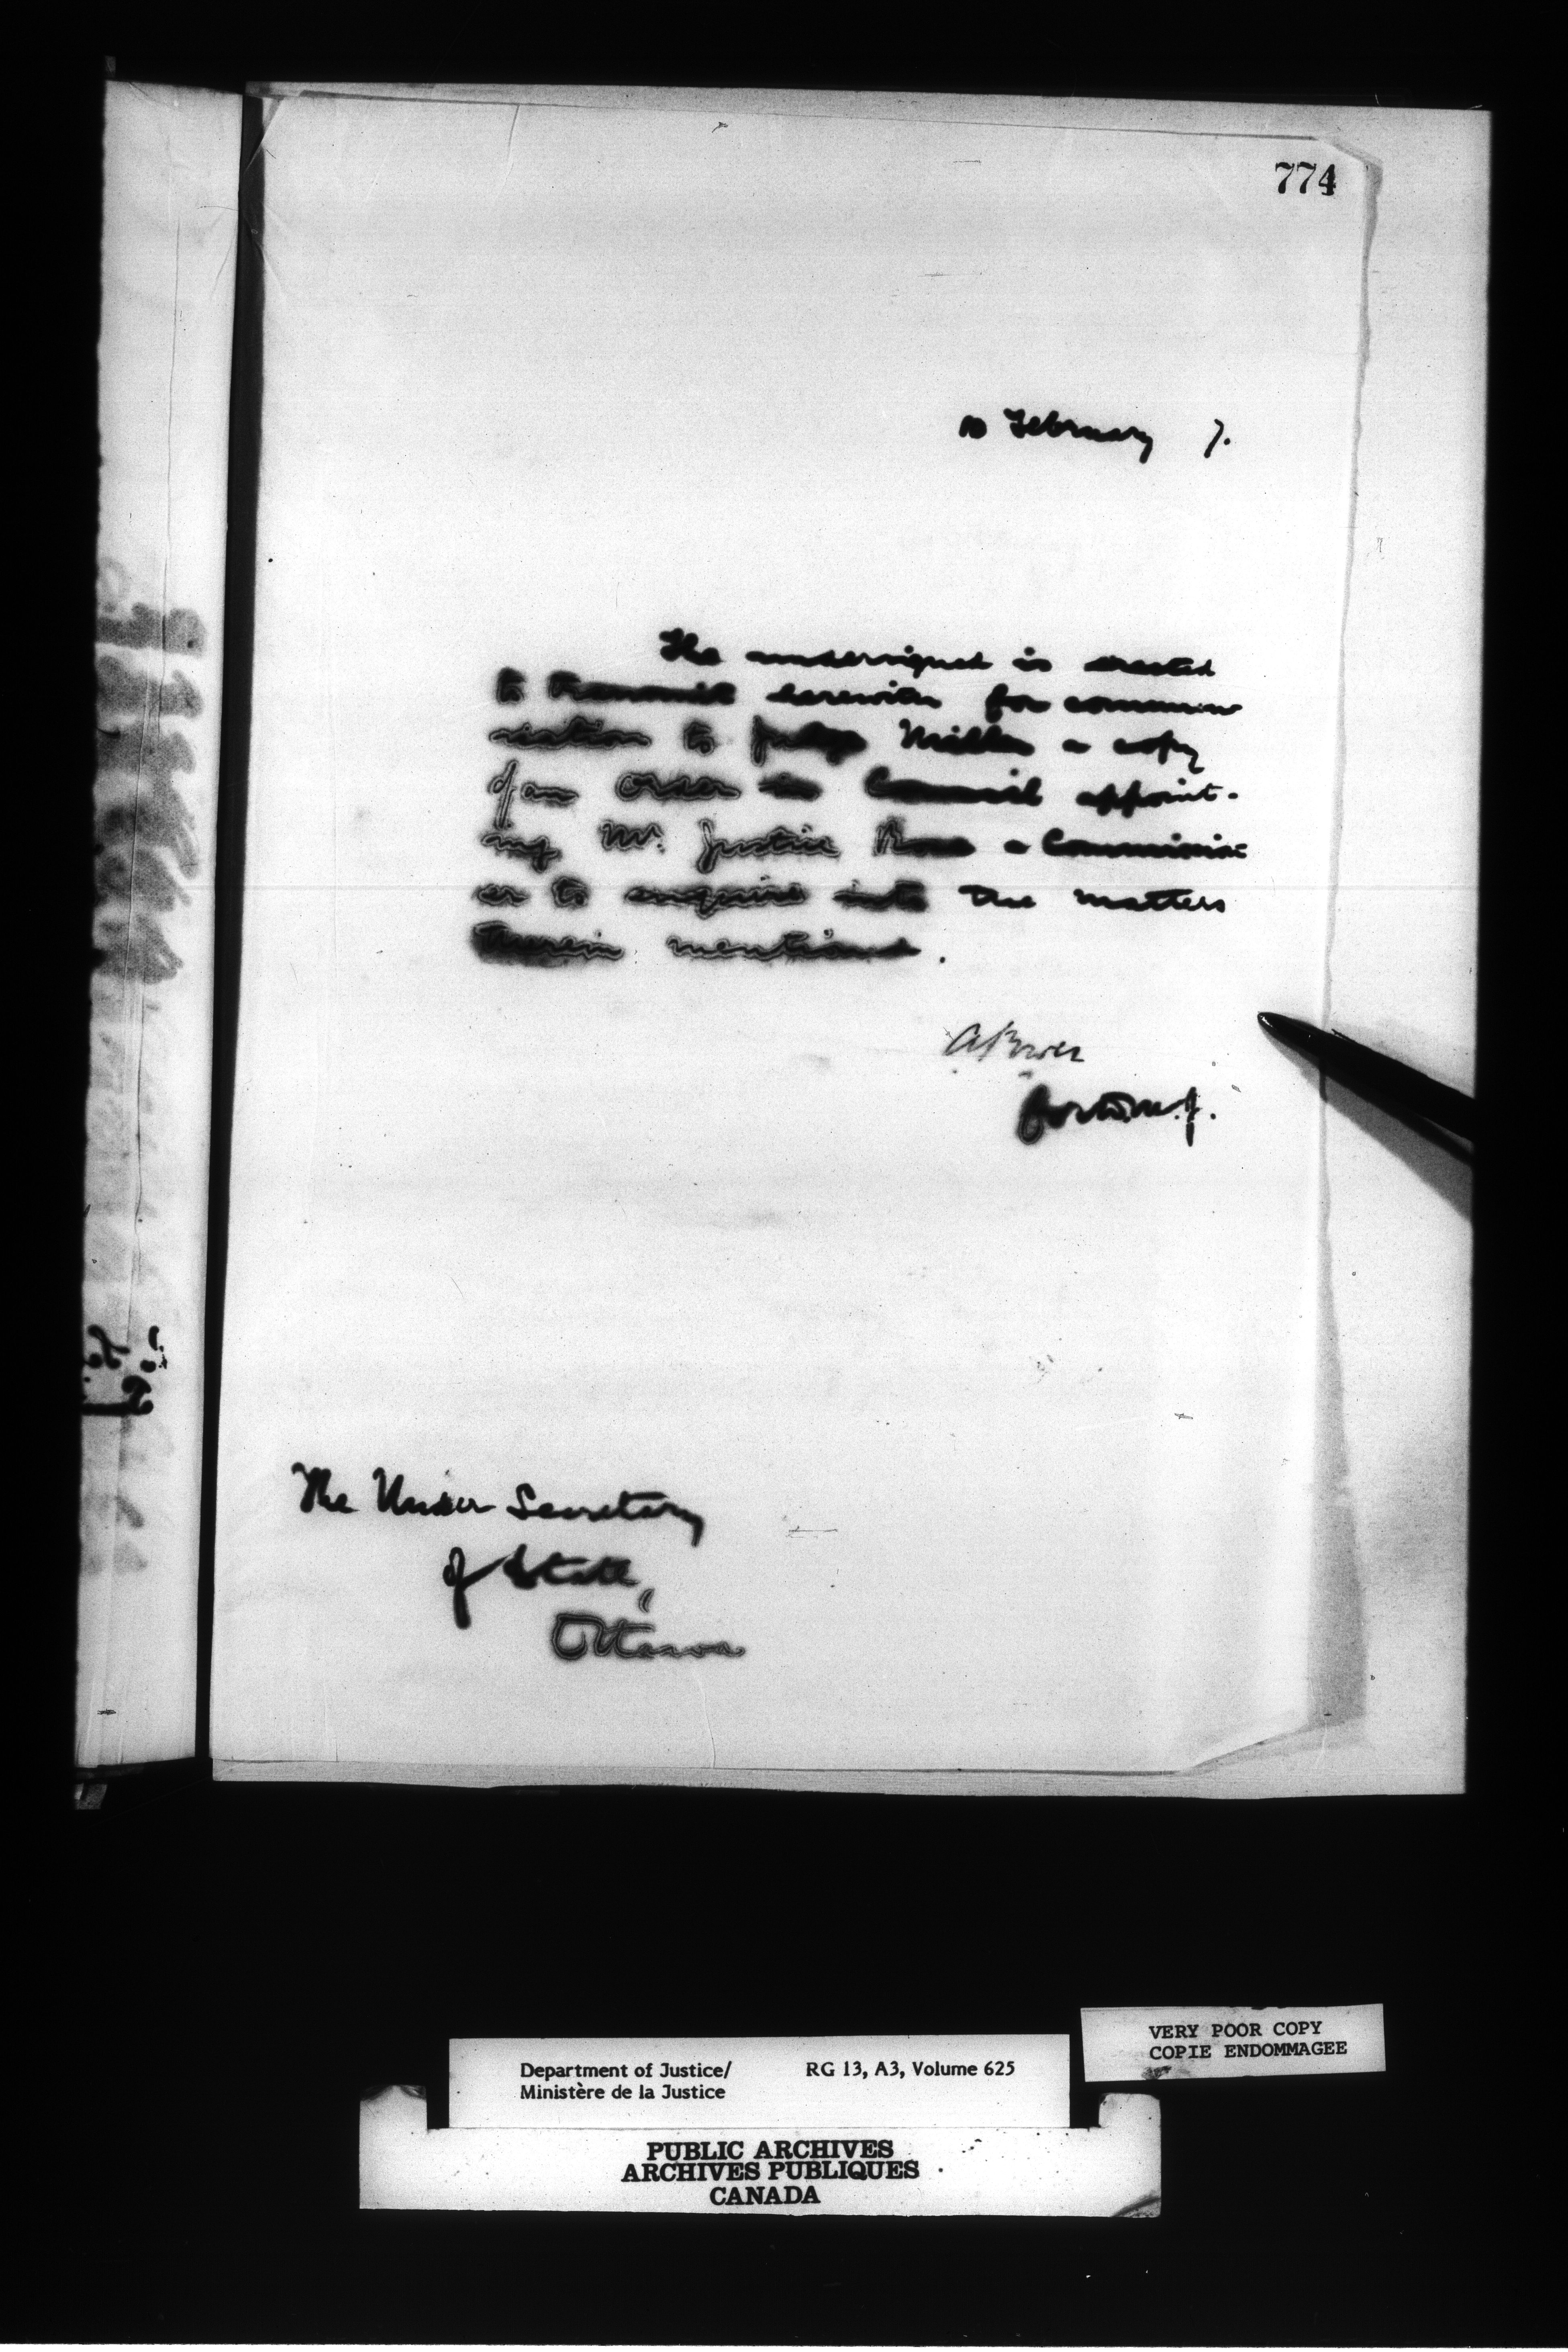 774
10 February 7.
The undersigned is directed
to transmit herewith for commun
ication to Judge Miller a copy
of an Order in Council appoint-
ing Mr. Justice Rose a Commission-
er to enquire into the matters
therein mentioned.
A Power
for D.M.J.
The Under Secretary
of State,
Ottawa
VERY POOR COPY
COPIE ENDOMMAGEE
Department of Justice/ RG 13, A3, Volume 625
Ministère de la Justice
PUBLIC ARCHIVES
ARCHIVES PUBLIQUES
CANADA